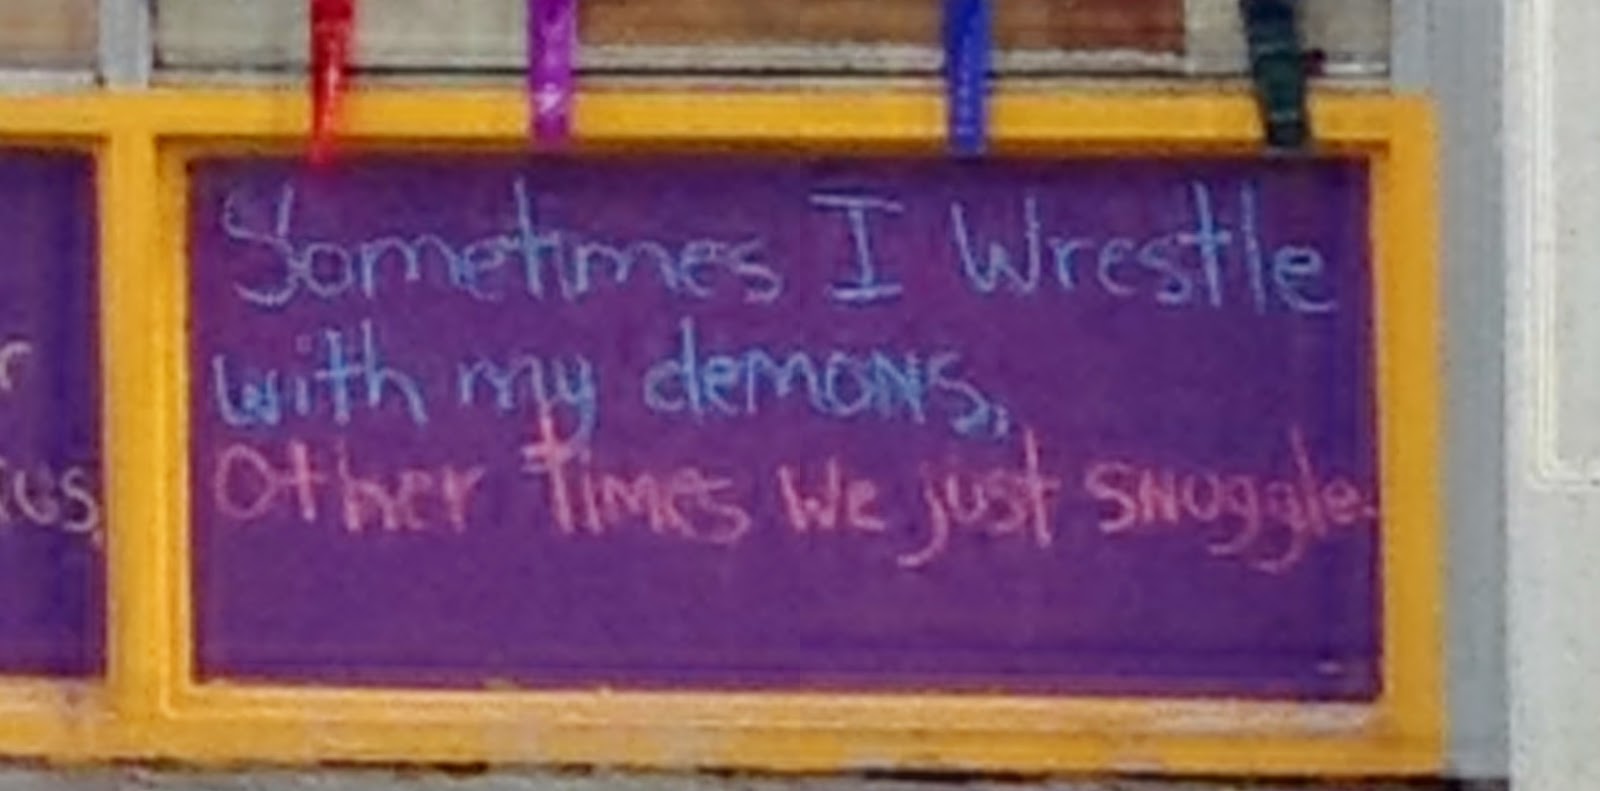 Sometimes I Wrestle
with my demons,
Other Times We just snuggle.